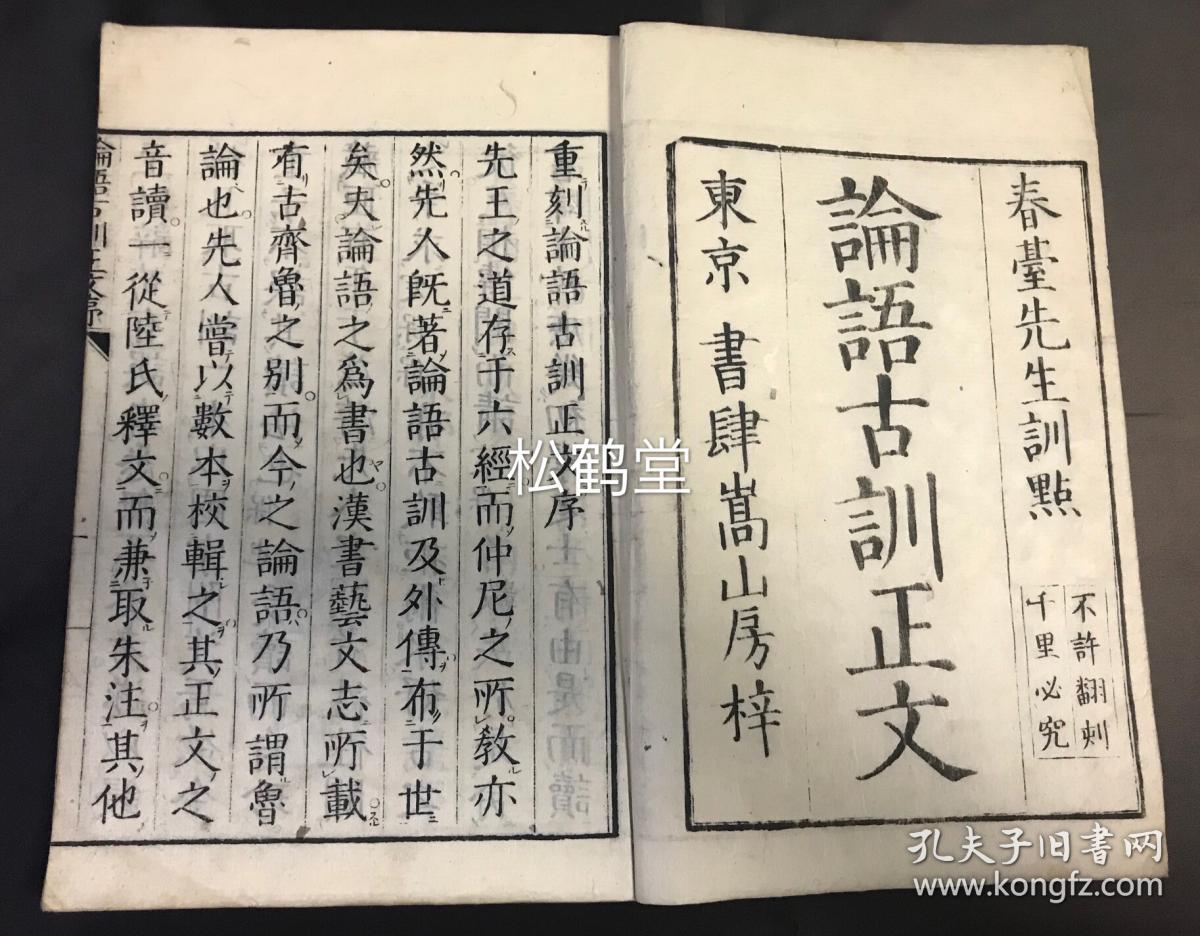 春臺先生訓點
不許翻刻
千里必究
論語古訓正文
東京 書肆嵩山房梓
重刻論語古訓正文序
先王之道存于六經而仲尼之所教亦
然先人既著論語古訓及外傳布于世
矣夫論語之爲書也漢書藝文志所載
有古齊魯之別而今之論語乃所謂魯
論也先人嘗以數本校輯之其正文之
音讀一從陸氏釋文而兼取朱注其他
論語古訓正文序
松鹤堂
孔夫子旧书网
www.kongfz.com